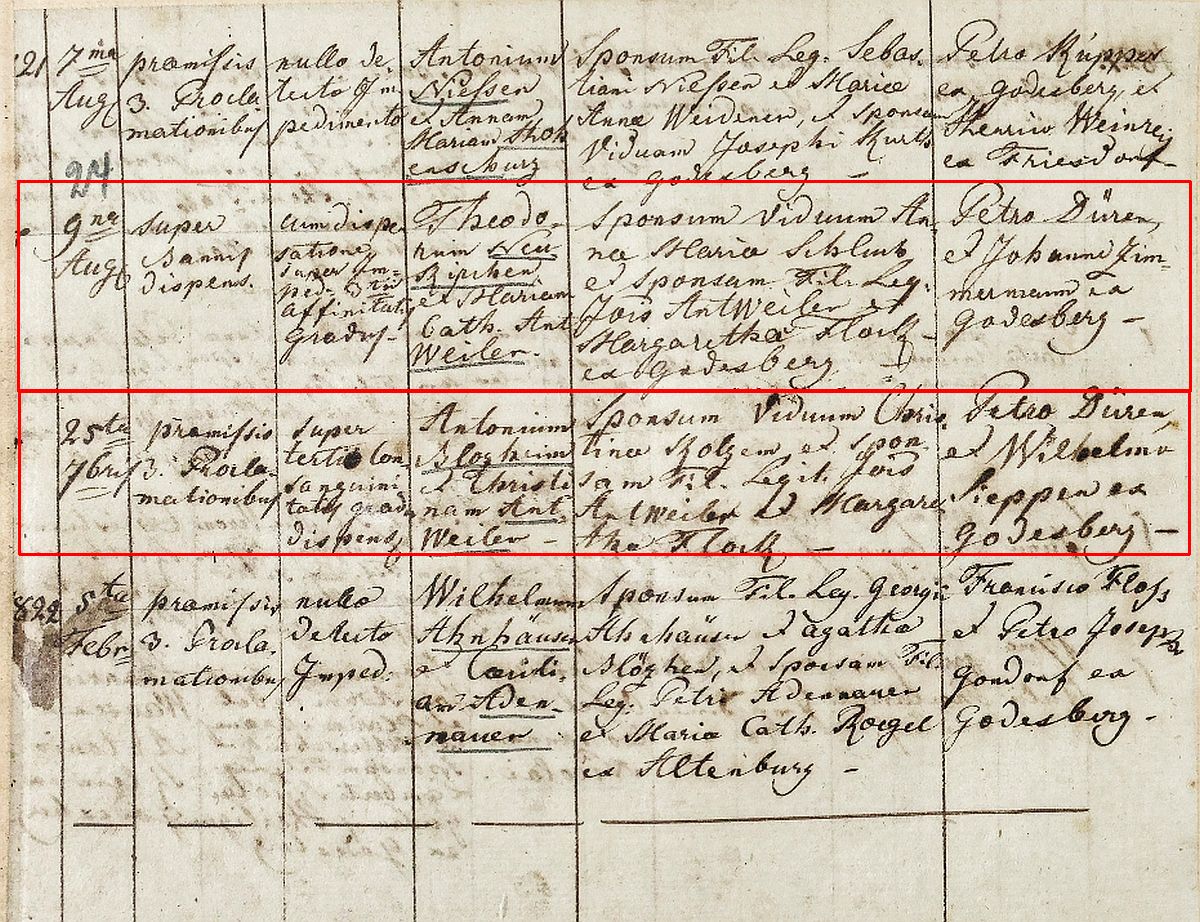 21 7ma Aug
præmissis 3. Procla mationibus
nullo de tecto Im pedimento
Antonium
Niessen
et Annam
Mariam
Sponsum Fil. Leg. Sebas
tiani Niessen et Maria
Anna Weidenen, et Sponsam
Viduam Josephi Kurth
ex Godesberg –
Petro Küpper
ex Godesberg, et
Henrico Weinrei
ex Friesdorf
24
9na
Aug
super
Bannis
dispens.
cum dispe
satione
super Im=
ped.
affinitatis
Gradus-
Theodo-
rum Neu-
Kirchen
et Mariam
Cath. Ant
Weiler.
Sponsum Viduum An-
na Maria Schlun
et Sponsam Fil. Leg.
Jois AntWeiler et
Margaretha Flock-
ex Godesberg
Petro Düren,
et Johanne Zim=
mermann ex
Godesberg –
25ta
7bris
præmissis
3. Procla-
mationibus
super
tertio Con
sanguini
tatis grad
dispens
Antonium
et Christi
nam Ant
Weiler –
Sponsum Viduum Chris
tina Kolzem et Spon
sam Fil. Legit. Jois
AntWeiler et Margare
tha Flock –
Petro Düren,
et Wilhelmo
Sieppen ex
Godesberg –
822 5ta
Febr
præmissis
3. Procla.
mationibus
nullo
detecto
Imped:
Wilhelmum
Ahnhäuser
et
Aden-
nauer
Sponsum Fil. Leg. Georgi
Ahnhäuser et agatha
Blözhen, et Sponsam Fil.
Leg. Petri Adennauer
et Maria Cath. Roegel
ex Altenburg –
Francisco Floss
et Petro Joseph
Gondorf ex
Godesberg -